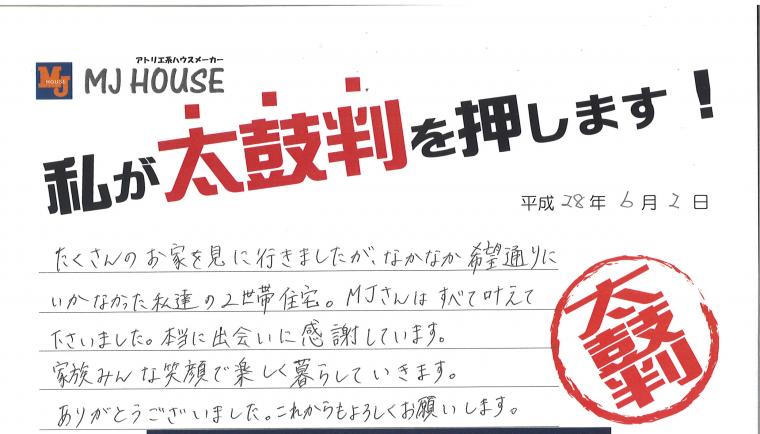 アトリエ系ハウスメーカー
MJ HOUSE
MJ HOUSE
私が太鼓判を押します!
平成28年6月2日
たくさんのお家を見に行きましたが、なかなか希望通りに
いかなかった私達の2世帯住宅。MJさんはすべて叶えて
下さいました。本当に出会いに感謝しています。
家族みんな笑顔で楽しく暮らしていきます。
ありがとうございました。これからもよろしくお願いします。
太鼓判